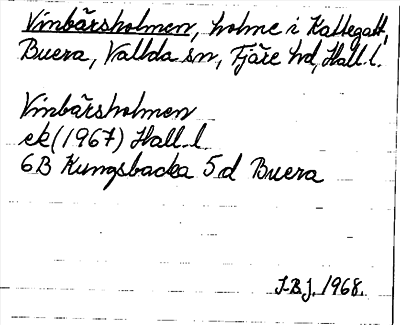 Vinbärsholmen, holme i Kattegatt,
Buera, Vallda sn, Fjäre hd, Hall. l.
Vinbärsholmen
ek (1967) Hall. l.
6B Kungsbacka 5d Buera
J.B.J. 1968.